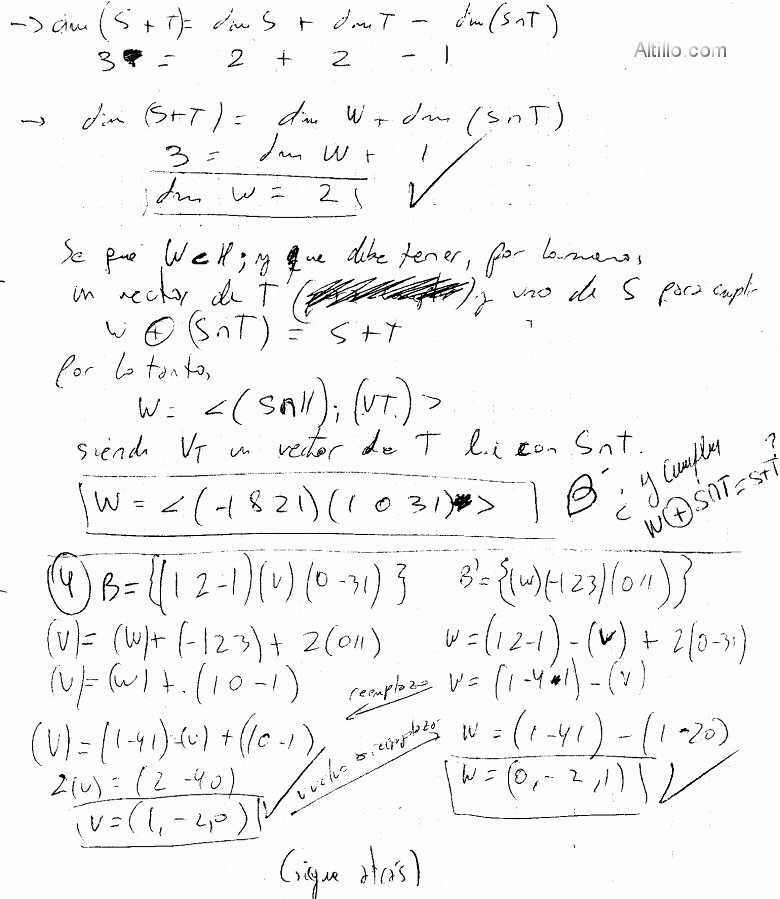 → dim (S + T) = dim S + dim T - dim (S∩T)
Altillo.com
3 = 2 + 2 - 1
→ dim (S+T) = dim W + dim (S∩T)
3 = dim W + 1
dim W = 2 ✓
Se que W⊂H ; y que debe tener, por lo menos,
un vector de T ( ) y uno de S para cumplir
W ⊕ (S∩T) = S+T
Por lo tanto,
W = <(S∩H); (VT)>
siendo VT un vector de T l.i con S∩T.
W = <(-1 8 2 1) (1 0 3 1)> B-
¿ y cumplen ?
W ⊕ S∩T = S+T
4 B = {(1 2 -1) (V) (0 -3 1)} B' = {(W) (-1 2 3) (0 1 1)}
(V) = (W) + (-1 2 3) + 2(0 1 1) W = (1 2 -1) - (V) + 2(0 -3 1)
(V) = (W) + (1 0 -1) reemplazo W = (1 -4 1) - (V)
(V) = (1 -4 1) - (V) + (1 0 -1) vuelvo a reemplazo W = (1 -4 1) - (1 -2 0)
2(V) = (2 -4 0) W = (0, -2, 1) ✓
V = (1, -2, 0) ✓
(sigue atrás)